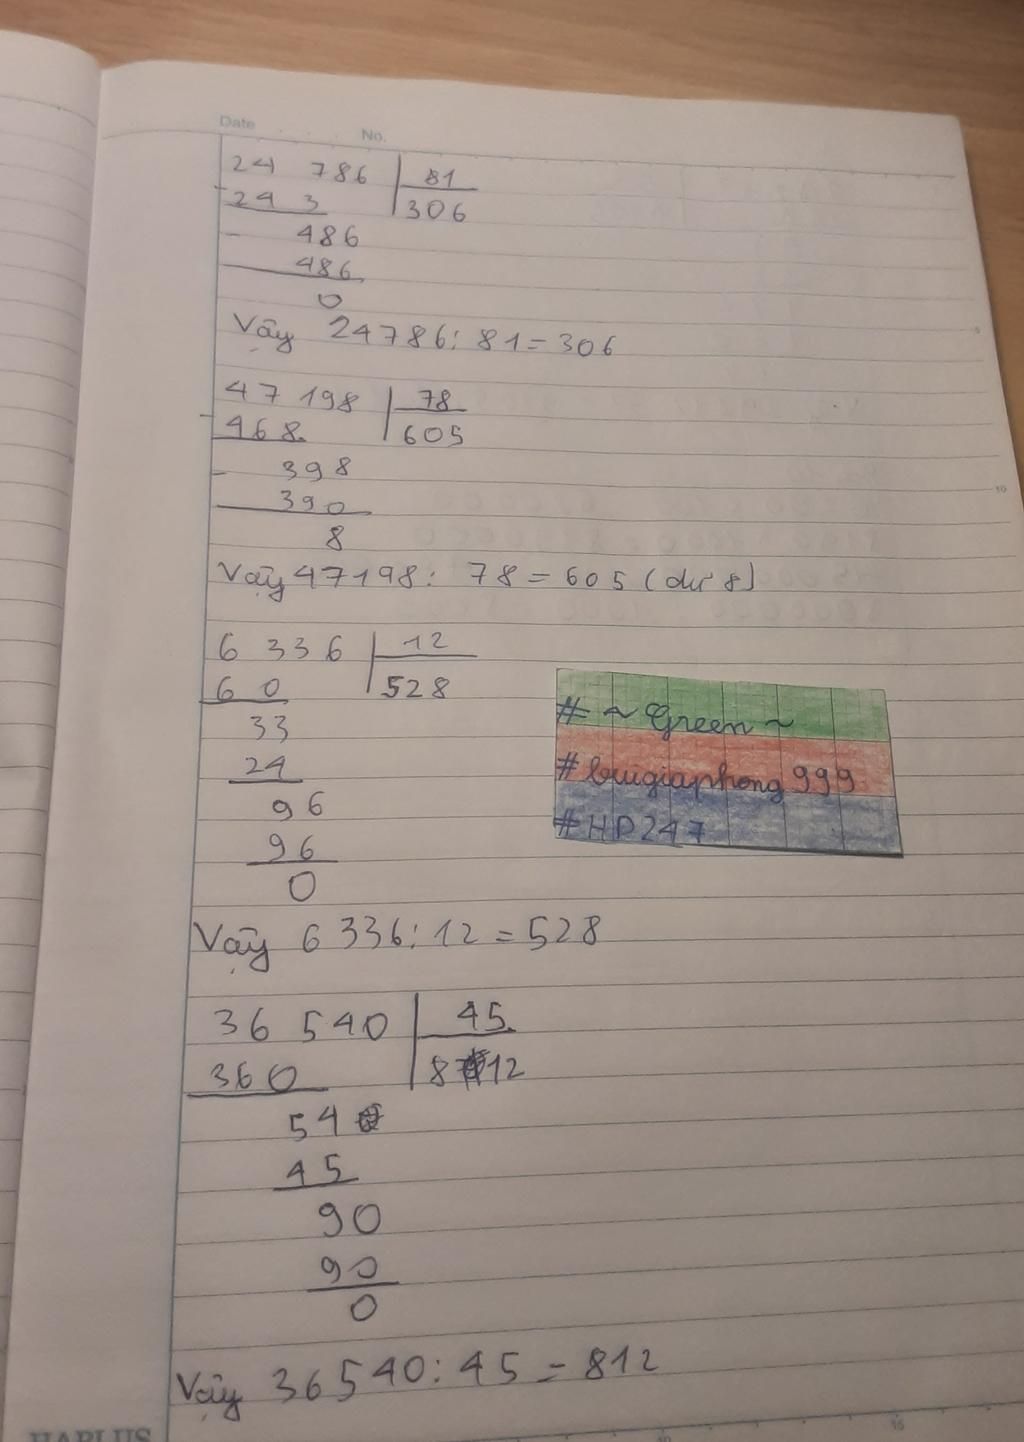 Date No.
24 786 81
24 3 306
486
486
0
Vậy 24786: 81 = 306
47 198 78
468 605
398
390
8
Vậy 47198: 78 = 605 (dư 8)
6 336 12
6 0 528
33
24
96
96
0
# ~ Green ~
# buigiaphong 999
# HP247
Vậy 6 336: 12 = 528
36 540 45
36 0 812
54
45
90
90
0
Vậy 36540: 45 = 812